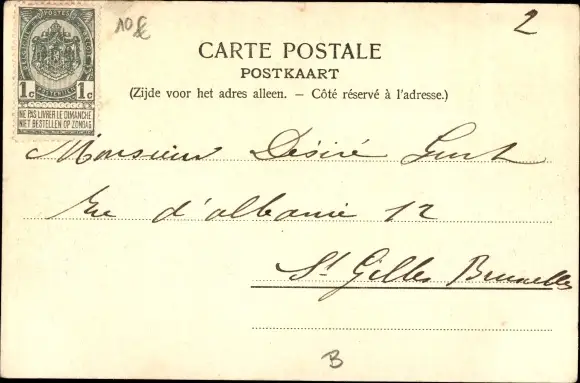 10€
2
CARTE POSTALE
POSTKAART
(Zijde voor het adres alleen. – Côté réservé à l'adresse.)
1c 1c
NE PAS LIVRER LE DIMANCHE
NIET BESTELLEN OP ZONDAG
Monsieur Désiré
Rue d'albanie 12
St Gilles Bruxelles
B